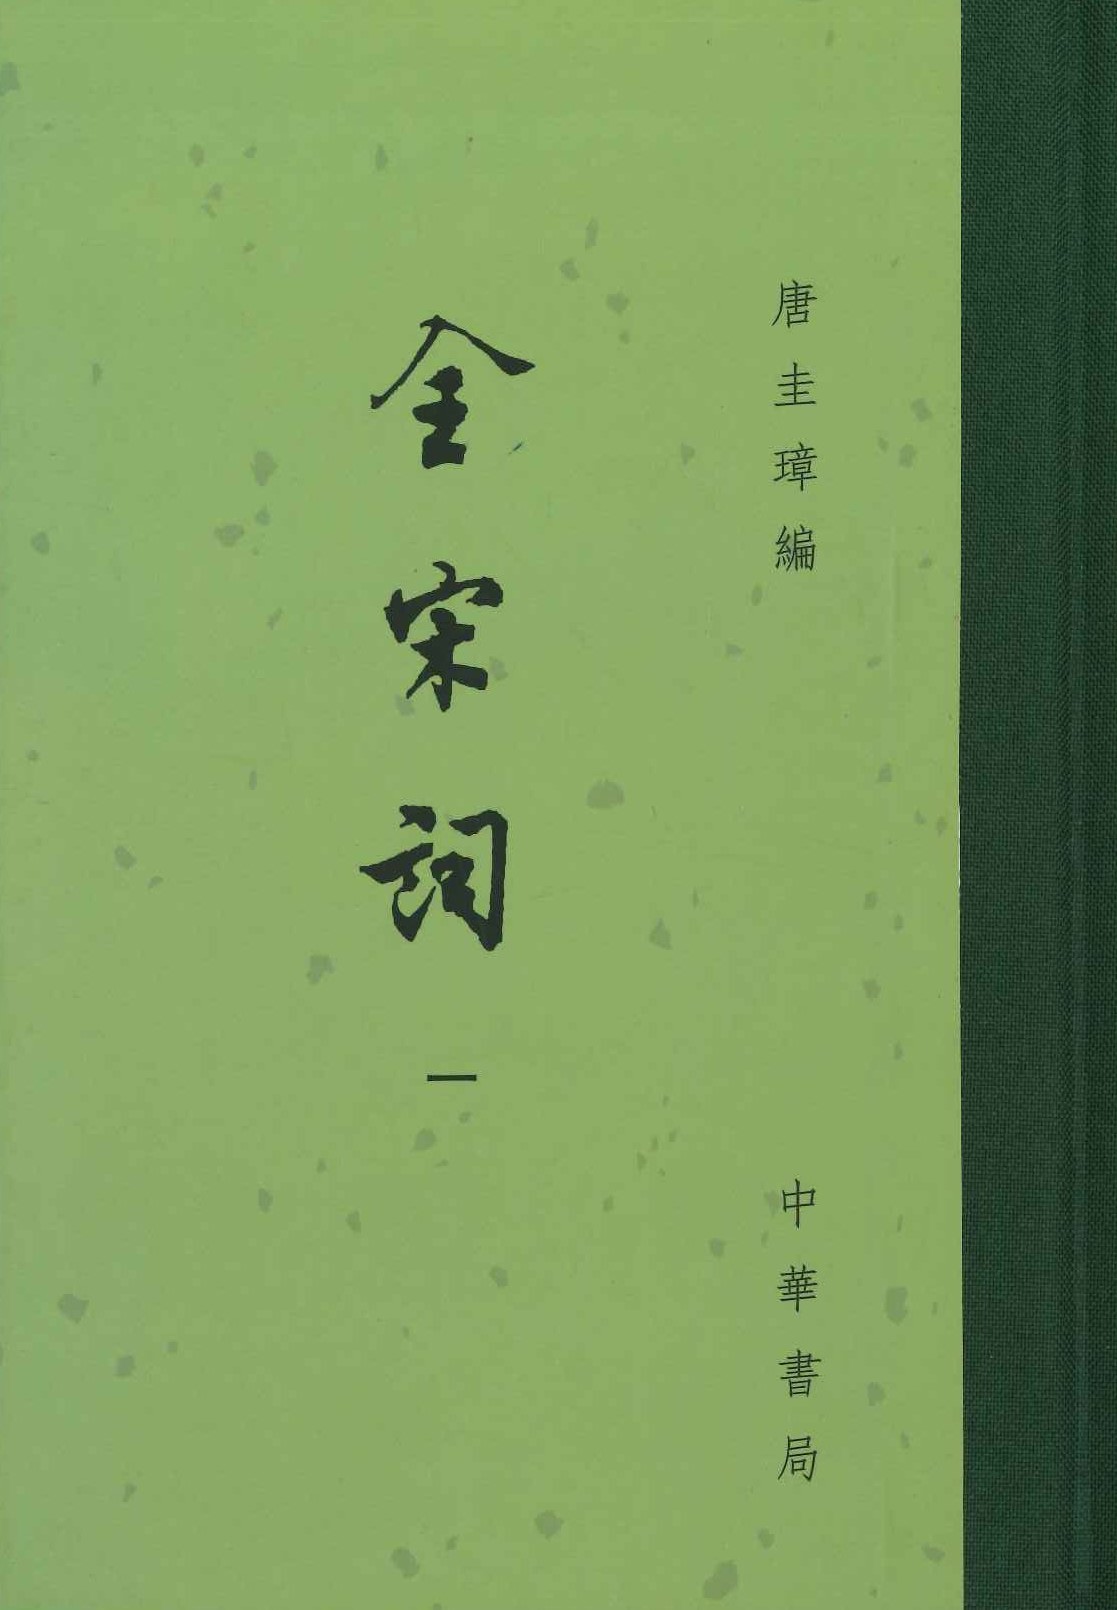 唐圭璋編
中華書局
全宋詞
一